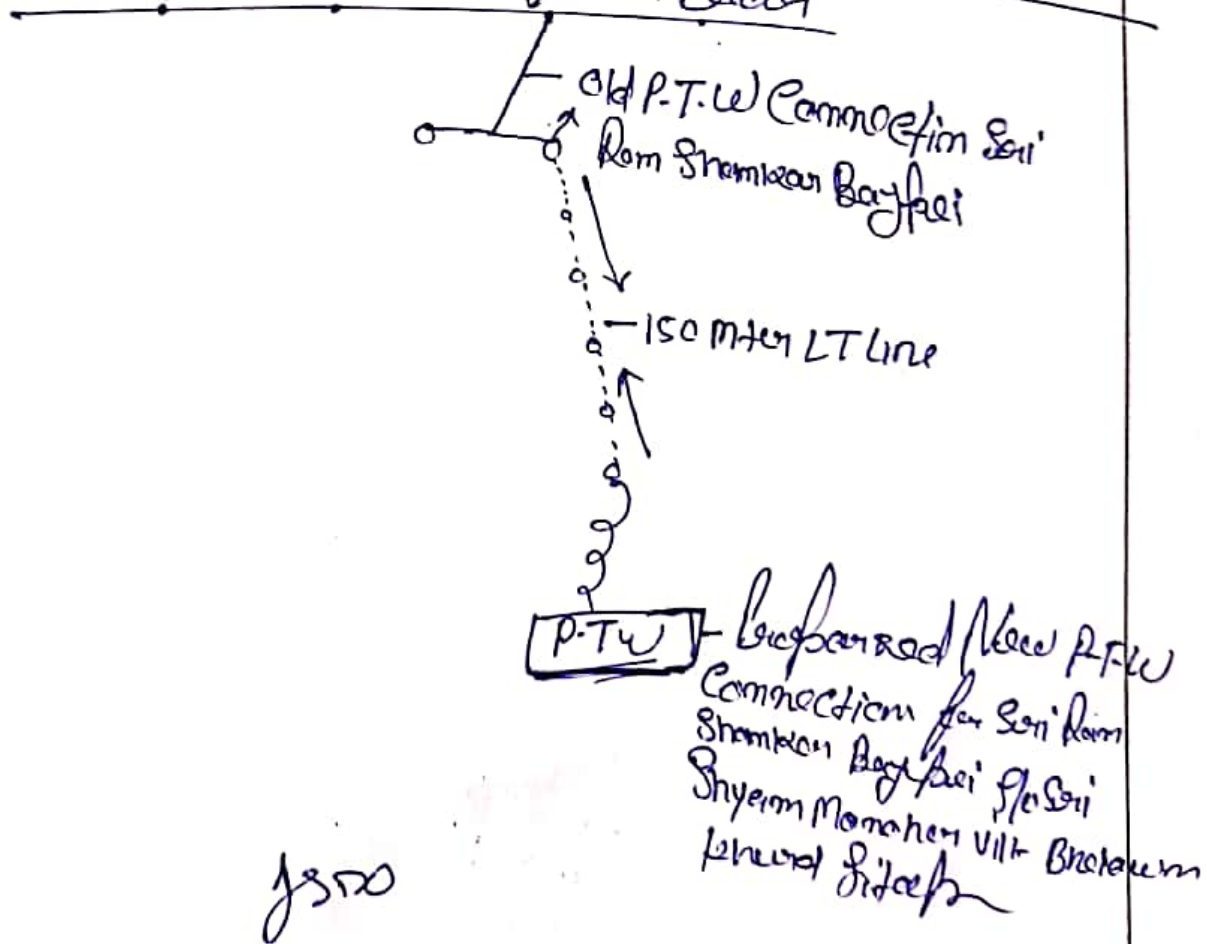 Old P.T.W Connection Sri
Ram Shankar Bajpai
150 Mter LT Line
P.TW
New P.T.W
Connection for Sri Ram
Shankar Bajpai S/o Sri
Shyam Manohar Vill-
Khurd